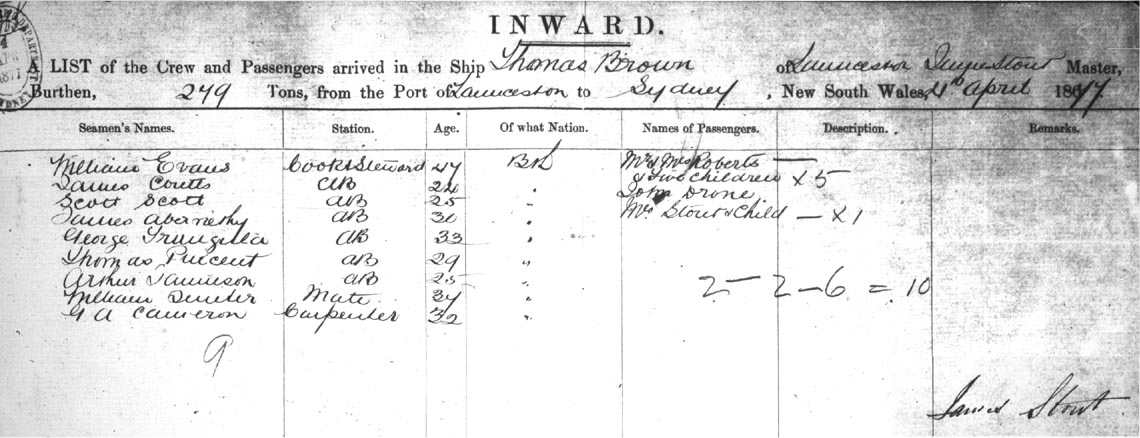 INWARD.
A LIST of the Crew and Passengers arrived in the Ship Thomas Brown of Launceston James Stout Master,
Burthen, 249 Tons, from the Port of Launceston to Sydney, New South Wales, 4th April 1877
Seamen's Names. Station. Age. Of what Nation. Names of Passengers. Description. Remarks.
William Evans Cook & Steward 47 Bh Mr & Mrs Roberts —
James Coutts AB 24 " & Two Children x 5
Scott Scott AB 25 " John Drone
James Abernethy AB 30 " Mrs Stout & Child — x 1
George AB 33 "
Thomas AB 29 "
Arthur Jamieson AB 25 "
2 — 2 — 6 = 10
William Mate 34 "
G A Cameron Carpenter 32 "
9
James Stout